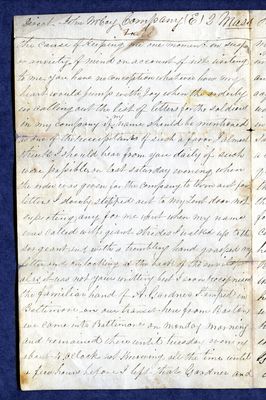 Direct John McCoy Company (E) 2 Mass
Inft
the cause of keeping me one moment on suspe
in anxiety of mind on account of not writing
to me, you have no conception what ever how my
heart would jump with joy when the orderly
in calling out the list of letters for the soldiers
in my company if my name should be mentioned
as one of the recipients of such a favor, I almost
think I should hear from you daily if such
were possible on last saturday evening when
the order was given for the company to turn out for
letters I slowly stepped out to my tent door not
expecting any for me but when my name
was called with giant strides I walked up to the
sergeant and with a trembling hand grasped my
letter and on looking at the back of the
alas it was not your writting but I soon recognised
the familiar hand of A. Gardner
Baltimore on our transit here from Boston
we came into Baltimore on Monday morning
and remained there until tuesday evening
about 4, oclock not knowing all the time until
a few hours before I left that Gardner and